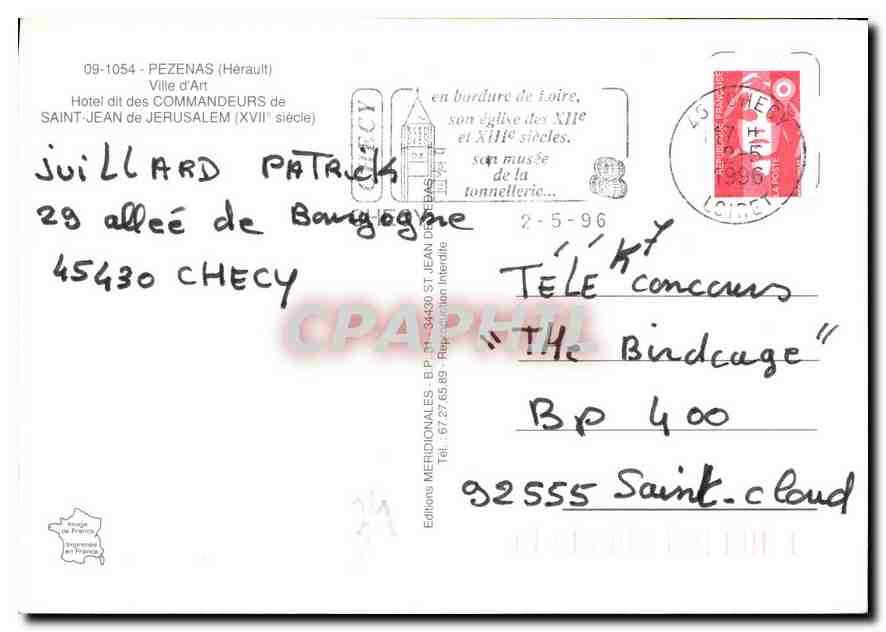 09-1054 - PEZENAS (Hérault)
Ville d'Art
Hotel dit des COMMANDEURS de
SAINT-JEAN de JERUSALEM (XVIIe siècle)
JUILLARD PATRICK
29 alleé de Bourgogne
45430 CHECY
CHECY
en bordure de Loire,
son église des XIIe
et XIIIe siècles.
son musée
de la
tonnellerie...
2-5-96
RÉPUBLIQUE FRANÇAISE
LA POSTE
45 CHECY
2-5
1996
LOIRET
Editions MERIDIONALES - B.P. 31 - 34430 ST JEAN DE VEDAS
Tél.: 67.27.65.89 - Reproduction Interdite
TÉLÉ K7 concours
"THe Birdcage"
Bp 400
92555 Saint-cloud
CPAPHIL
Image
de France
Imprimée
en France